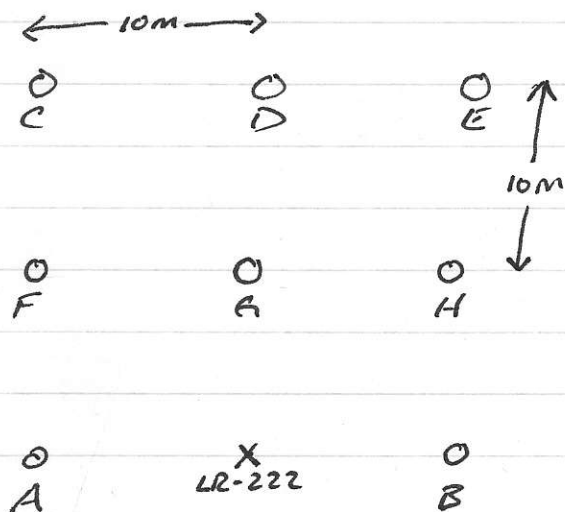 10m
C D E
10m
F G H
X
LR-222
A B